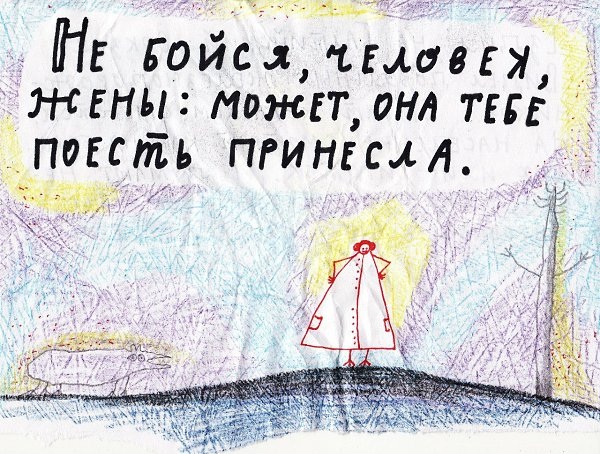 Не бойся, человек,
жены: может, она тебе
поесть принесла.